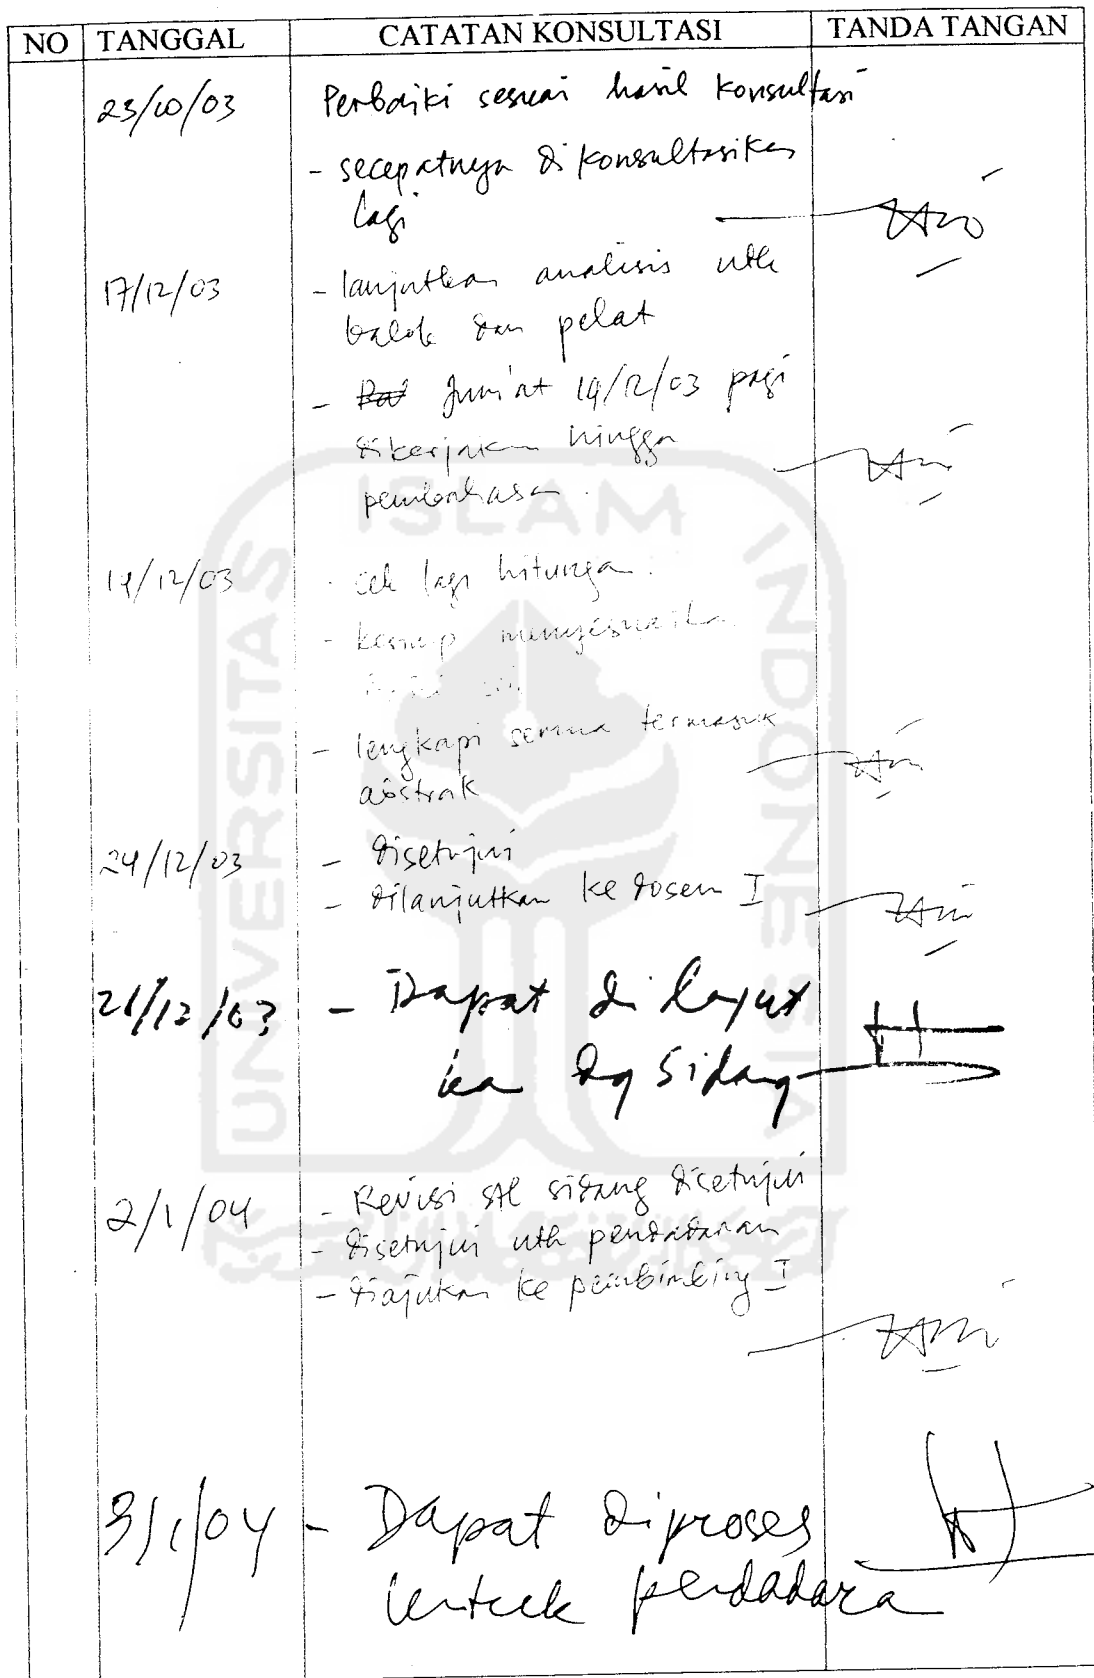 NO TANGGAL CATATAN KONSULTASI TANDA TANGAN
23/10/03 Perbaiki sesuai hasil konsultasi
- secepatnya dikonsultasikan
lagi
17/12/03 - lanjutkan analisis utk
balok dan pelat
- Jum'at 19/12/03 pagi
dikerjakan hingga
pembahasan.
19/12/03 - cek lagi hitungan.
- menyesuaikan
- lengkapi semua termasuk
abstrak
24/12/03 - disetujui
- dilanjutkan ke dosen I
/12/03 - Dapat dilanjut
kan dg Sidang
2/1/04 - Revisi stl sidang disetujui
- disetujui utk pendadaran
- diajukan ke pembimbing I
3/1/04 - Dapat diproses
untuk pendadara
UNIVERSITAS ISLAM INDONESIA